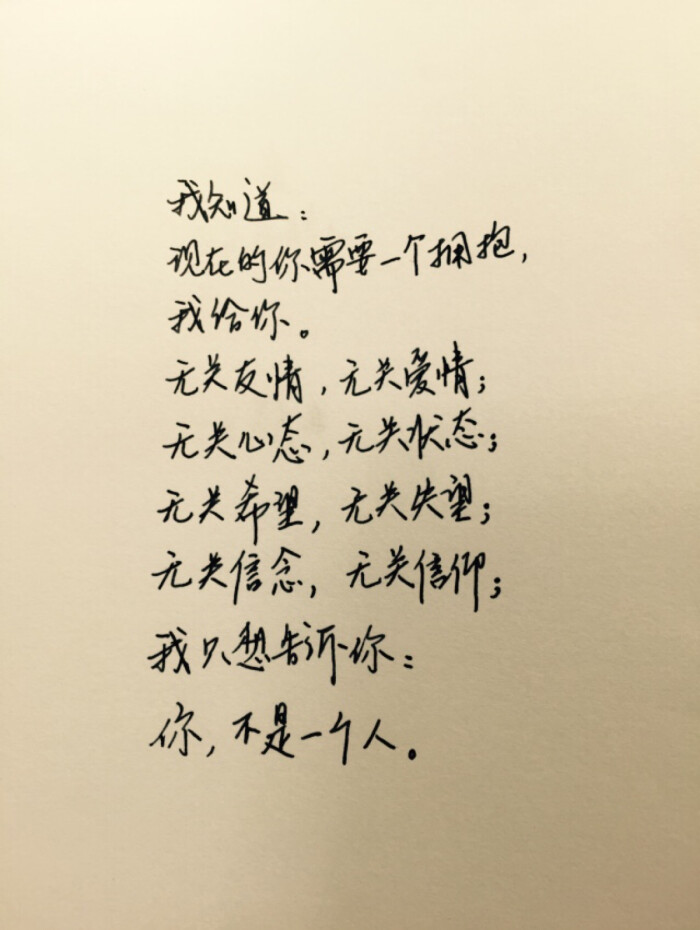 我知道：
现在的你需要一个拥抱，
我给你。
无关友情，无关爱情；
无关心态，无关状态；
无关希望，无关失望；
无关信念，无关信仰；
我只想告诉你：
你，不是一个人。